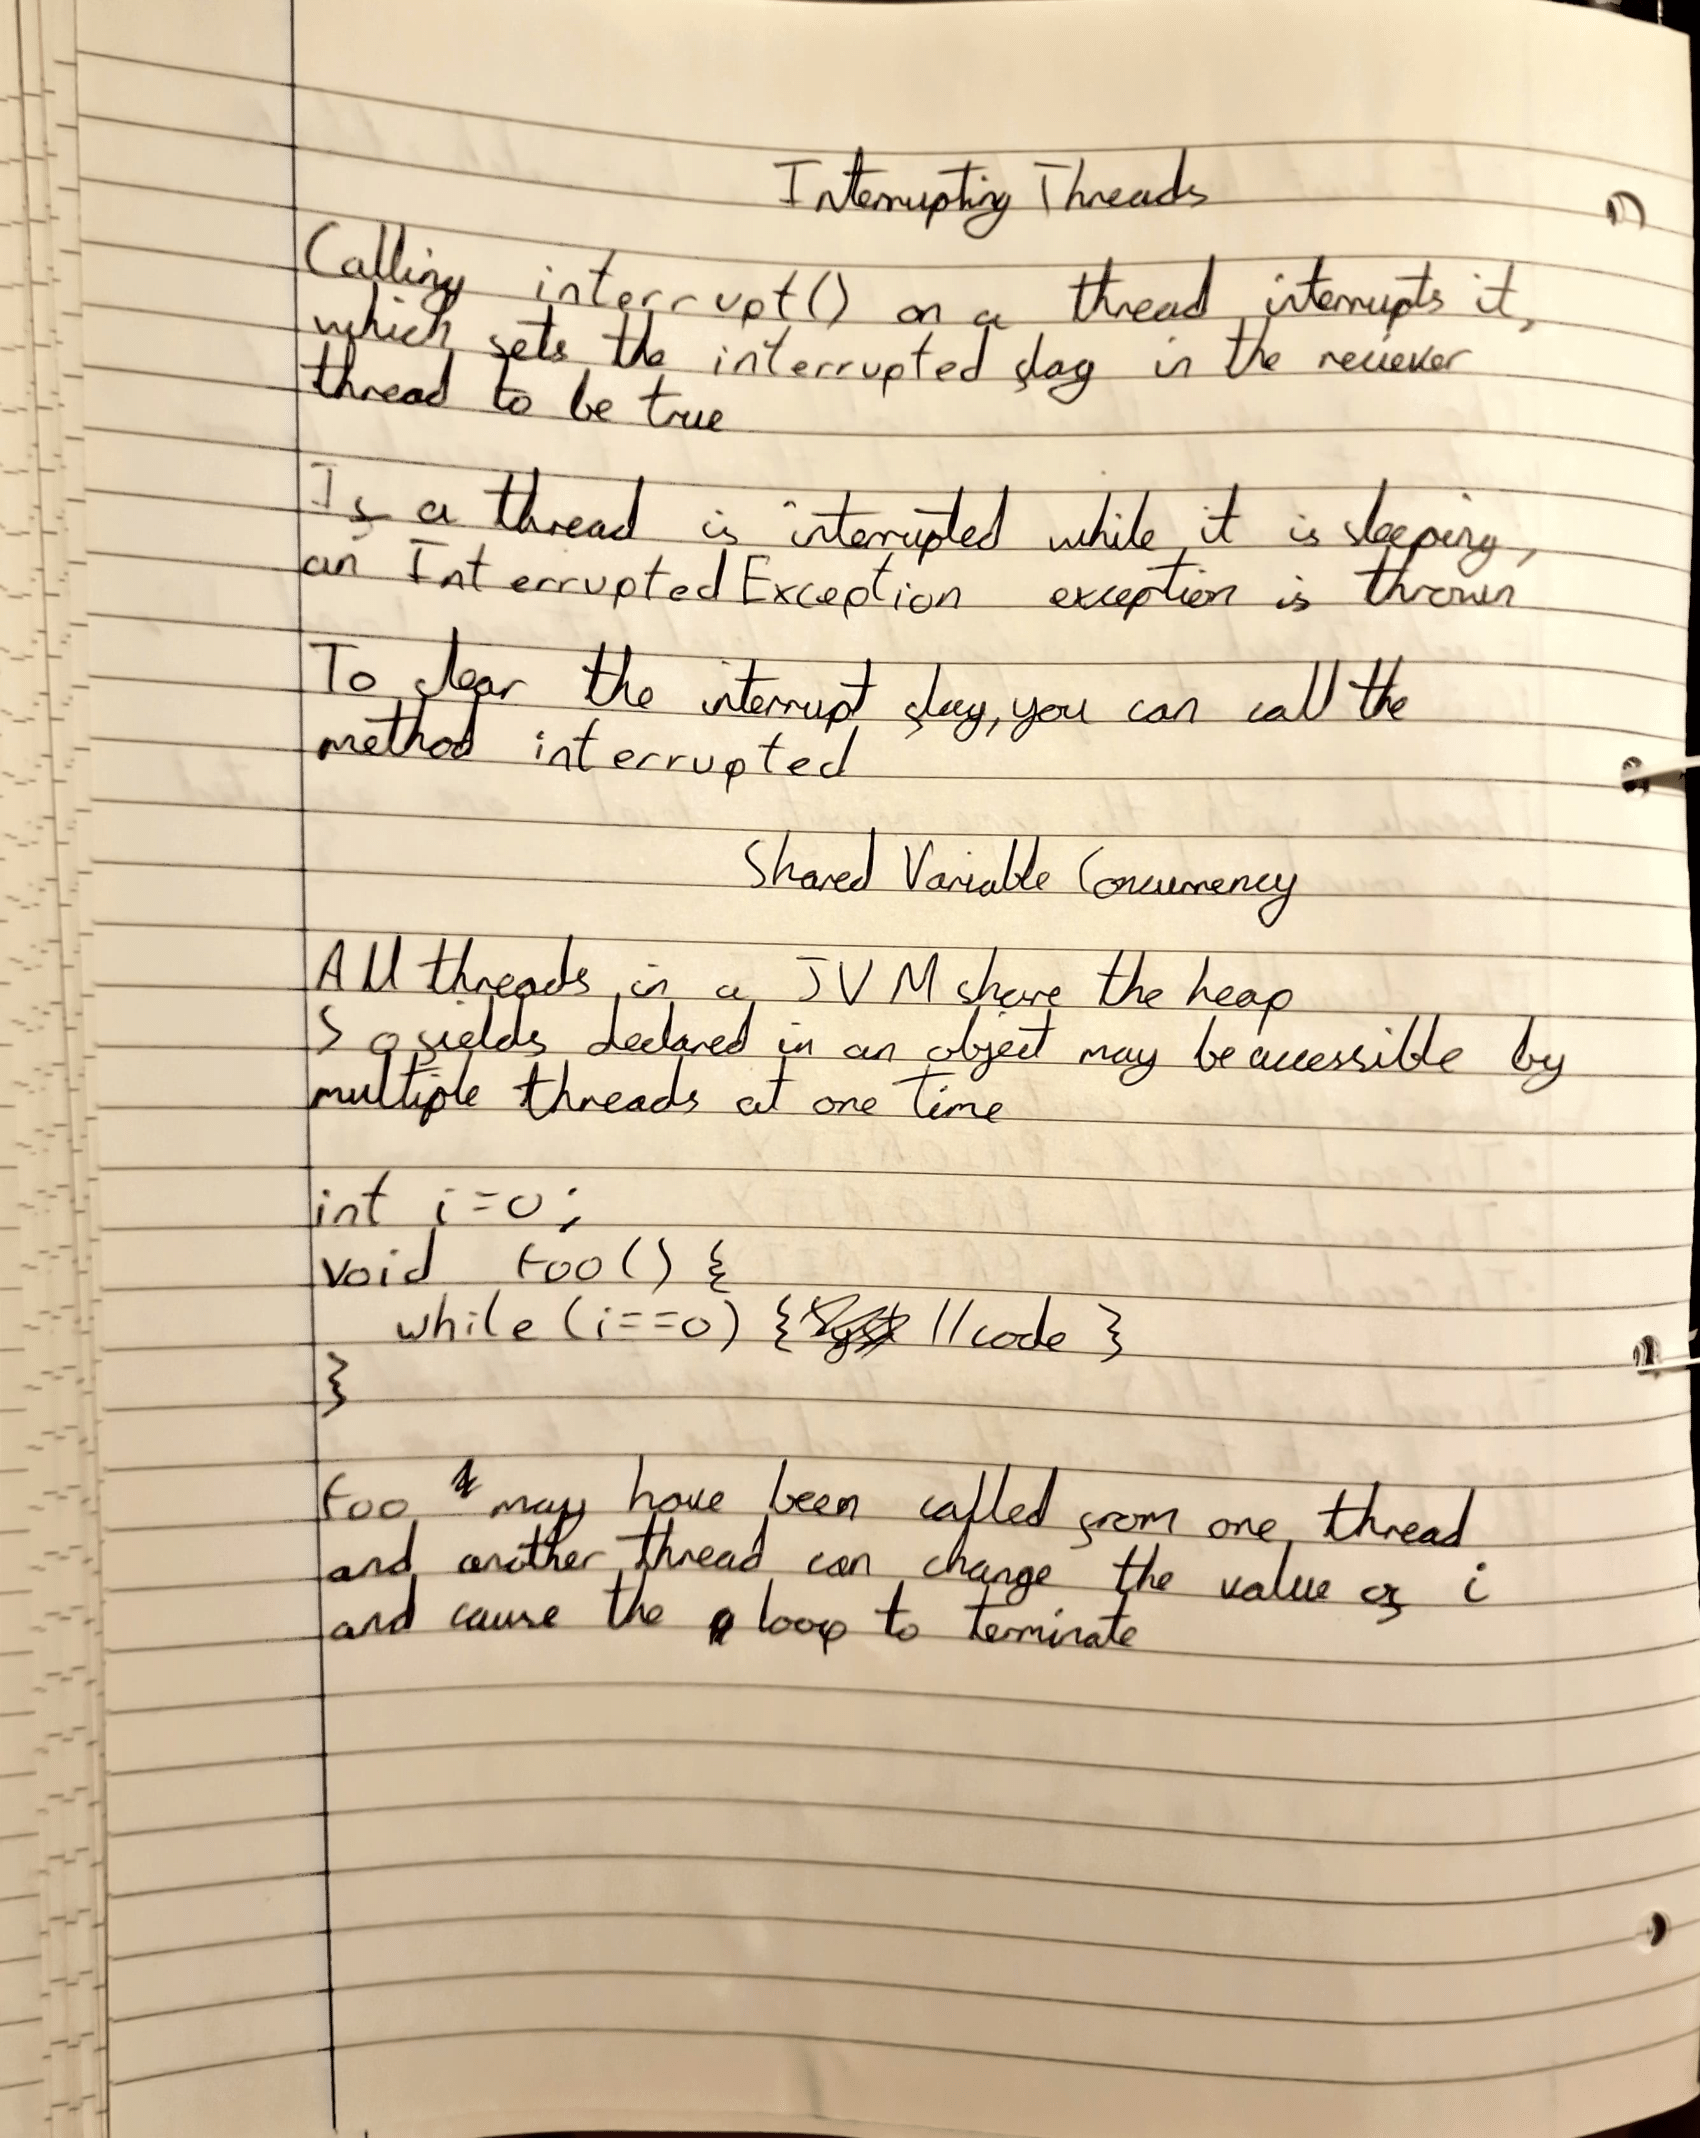 Interrupting Threads
Calling interrupt() on a thread interrupts it,
which sets the interrupted flag in the reciever
thread to be true
If a thread is interrupted while it is sleeping,
an InterruptedException exception is thrown
To clear the interrupt flag, you can call the
method interrupted
Shared Variable Concurrency
All threads in a JVM share the heap
So fields declared in an object may be accessible by
multiple threads at one time
int i=0;
void foo() {
while (i==0) { //code }
}
foo may have been called from one thread
and another thread can change the value of i
and cause the loop to terminate